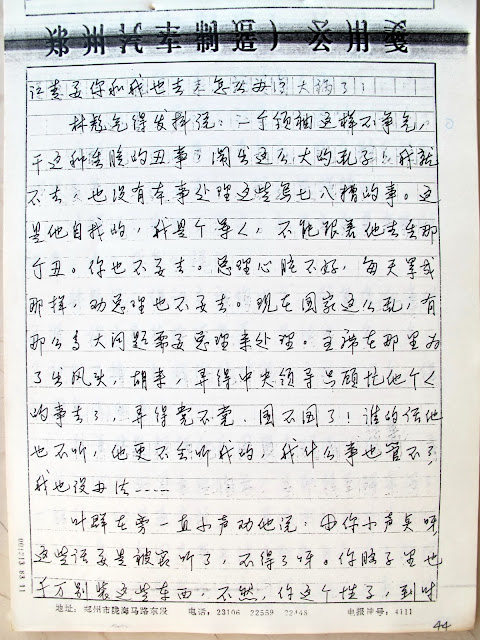 郑州汽车制造厂公用笺
江青要你和我也去 怎么办 大祸了!
林彪气得发抖说:一个领袖这样不争气,
干这种 脏的丑事,闹出这么大的乱子!我就
不去,也没有本事处理这些乌七八糟的事。这
是他自找的,我是个军人,不能跟着他去出那
个丑。你也不要去。总理心脏不好,每天累成
那样,劝总理也不要去。现在国家这么乱,有
那么多大问题需要总理来处理。主席在那里为
了出风头,胡来,弄得中央领导只顾忙他个人
的事去了,弄得党不党、国不国了!谁的话他
也不听,他更不会听我的,我什么事也管不了,
我也没办法……
叶群在旁一直小声劝他说:由你小声点呀
这些话要是被 听了,不得了呀。你脑子里也
千万别装这些东西,不然,你这个性子,到时
地址:郑州市陇海马路东段 电话:23106 22559 22448 电报挂号:4111
44